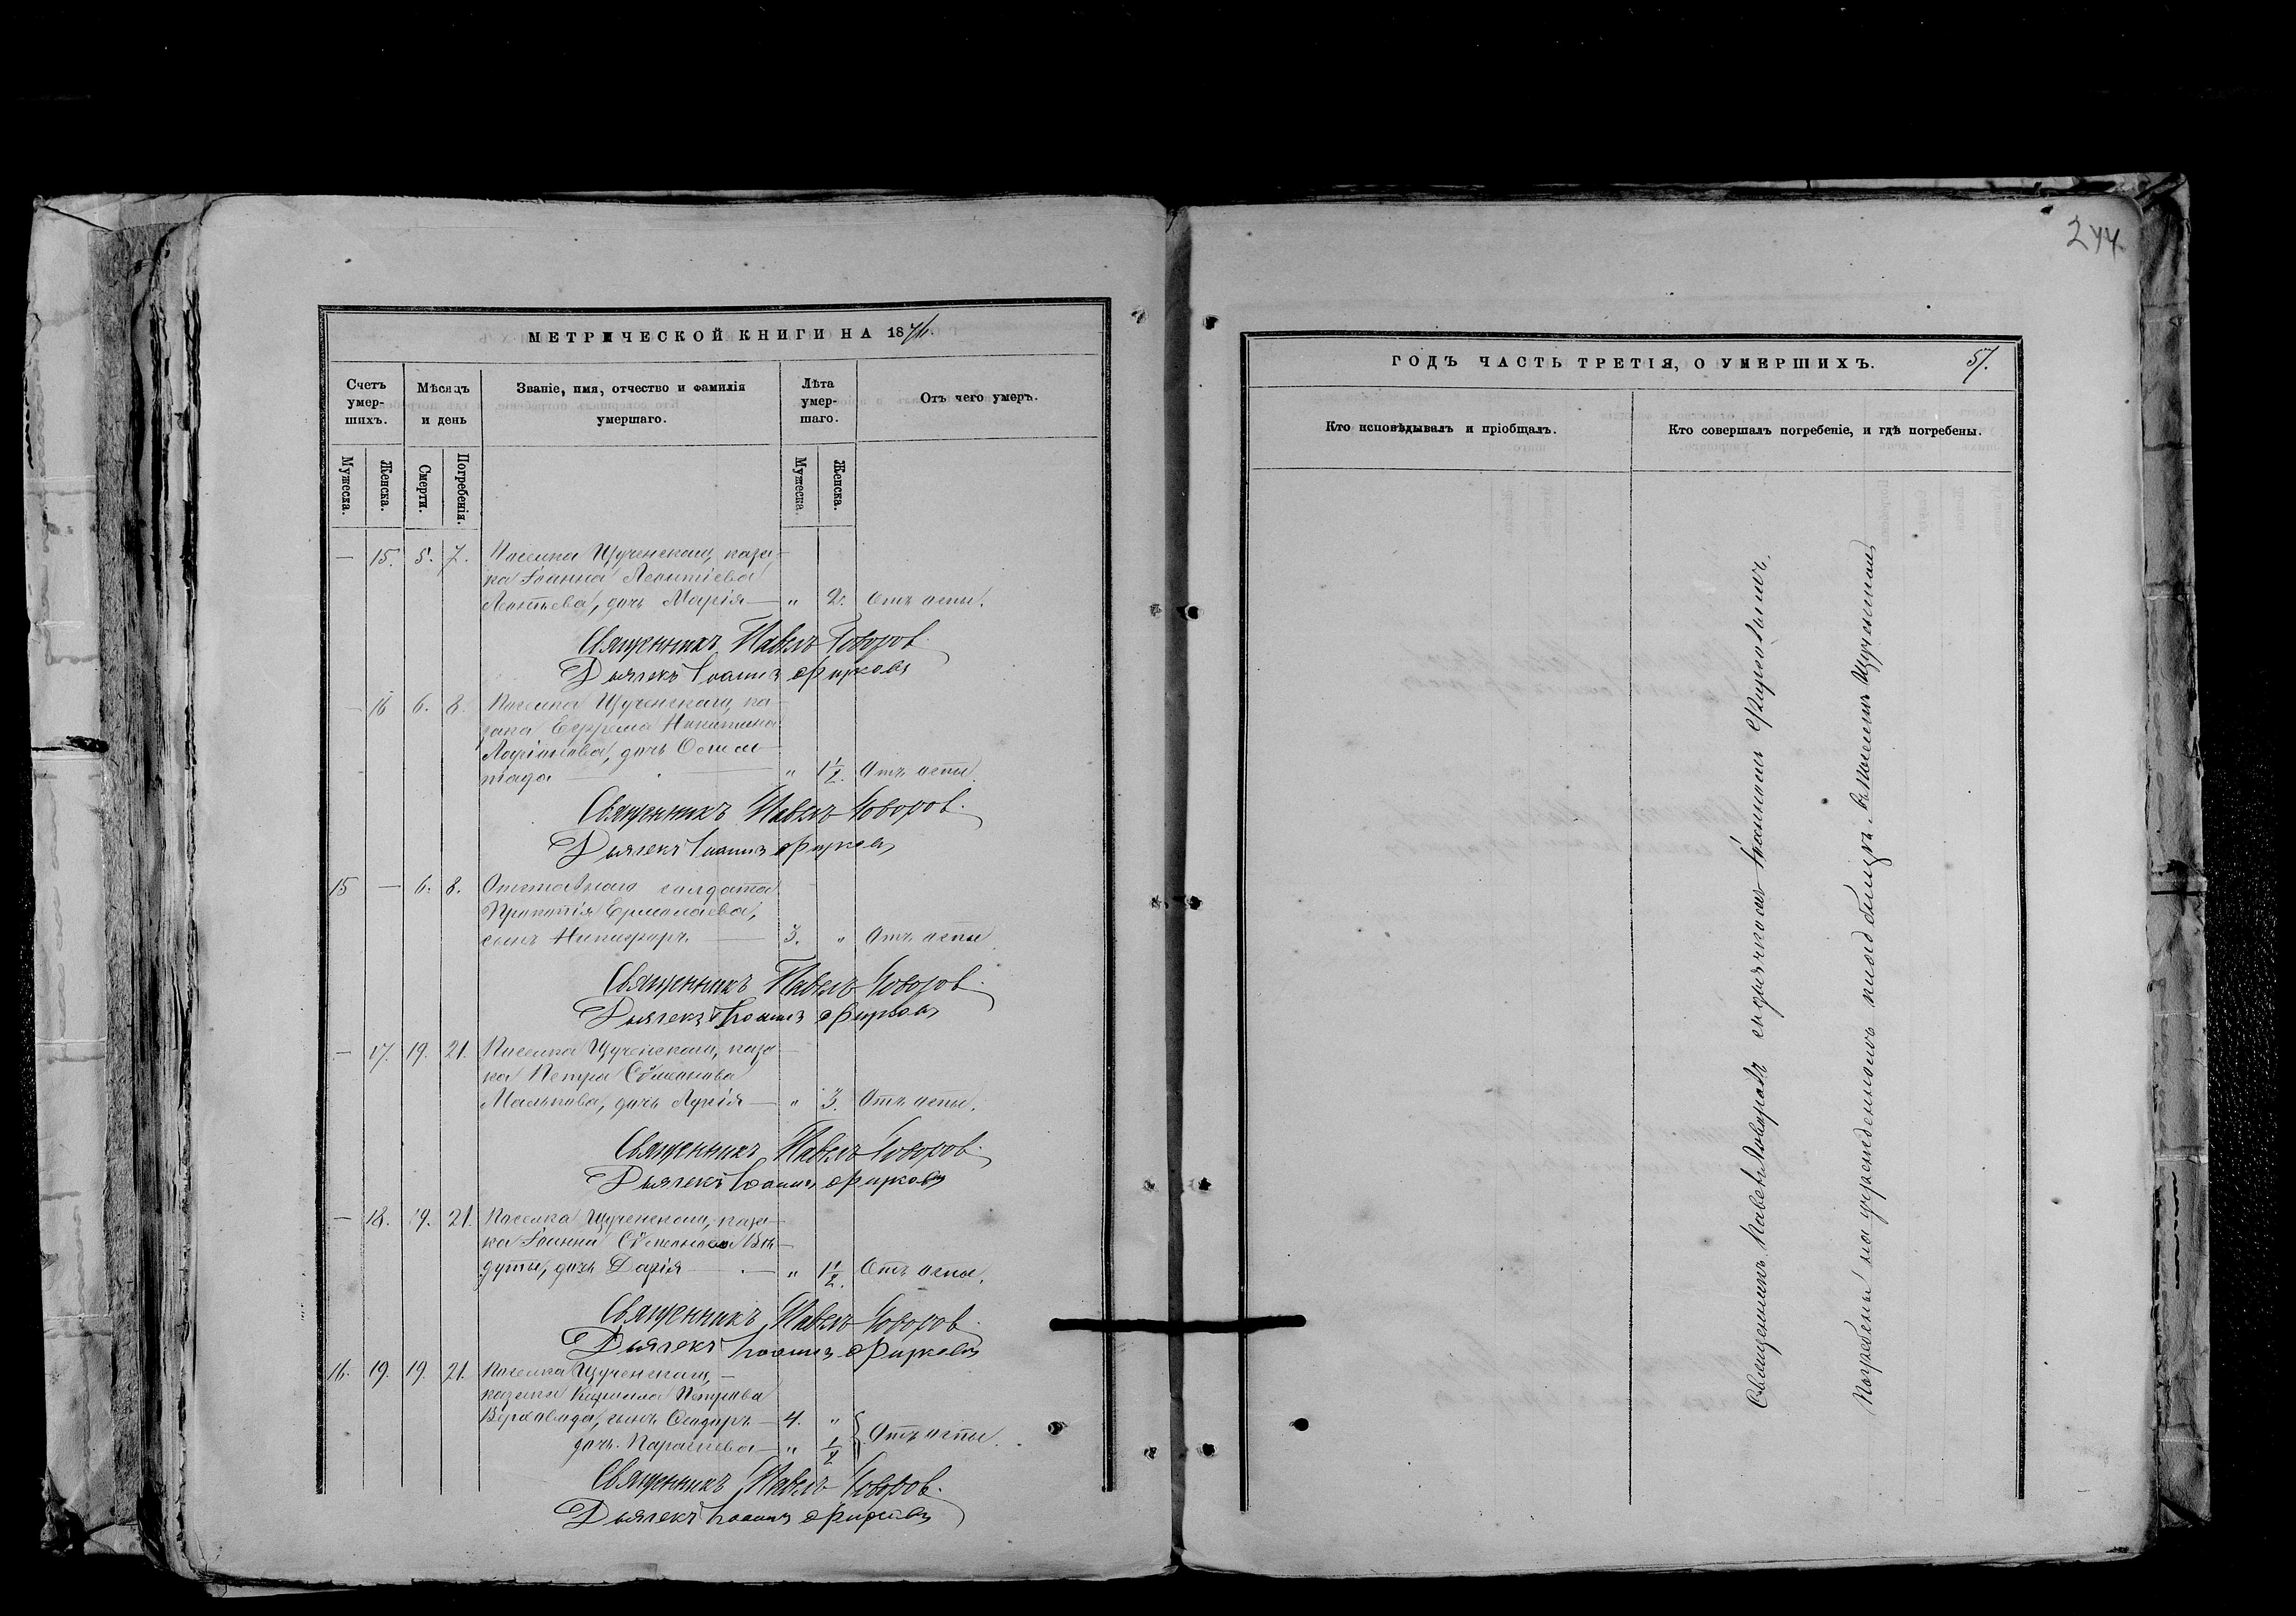 МЕТРИЧЕСКОЙ КНИГИ НА 1874.
Счетъ умер-шихъ.
Мѣсяцъ и день
Званіе, имя, отчество и фамилія умершаго.
Лѣта умер-шаго.
Отъ чего умеръ.
Мужеска.
Женска.
Смерти.
Погребенія.
Мужеска.
Женска.
— 15. 5. 7. Поселка Щученскаго, каза-
ка Іоанна Леонтіева
Леонтьева, дочь Марія — " 2. Отъ оспы.
Священникъ Павелъ Говоров.
Дьячекъ Іоаннъ Фирсовъ
— 16 6. 8. Поселка Щученскаго, ка-
зака Ефрема Никитина
Логинова, дочь
" 1 1/2. Отъ оспы
Священникъ Павелъ Говоров.
Дьячекъ Іоаннъ Фирсовъ
15 — 6. 8. Отставнаго солдата
Прокопія Ермолаева,
сынъ Никифоръ — 3. " Отъ оспы
Священникъ Павелъ Говоров.
Дьячекъ Іоаннъ Фирсовъ
— 17. 19. 21. Поселка Щученскаго, каза-
ка Петра Сѵмеонова
Малькова, дочь Лукія — " 3. Отъ оспы.
Священникъ Павелъ Говоров.
Дьячекъ Іоаннъ Фирсовъ
— 18. 19. 21. Поселка Щученскаго, каза-
ка Іоанна Сѵмеонова
дочь Дарія — " 1 1/2. Отъ оспы.
Священникъ Павелъ Говоров
Дьячекъ Іоаннъ Фирсовъ
16. 19. 19. 21. Поселка Щученскаго, —
казака Кирилла Петрова
сынъ — 4. "
дочь Параскева — " 1/2 Отъ оспы.
Священникъ Павелъ Говоров.
Дьячекъ Іоаннъ Фирсовъ
244
ГОДЪ ЧАСТЬ ТРЕТІЯ, О УМЕРШИХЪ. 57.
Кто исповѣдывалъ и пріобщалъ.
Кто совершалъ погребеніе, и гдѣ погребены.
Священникъ Павелъ Говоровъ съ дьячкомъ Іоанномъ Фирсовымъ.
Погребены на учрежденномъ кладбищѣ въ поселкѣ Щученскомъ